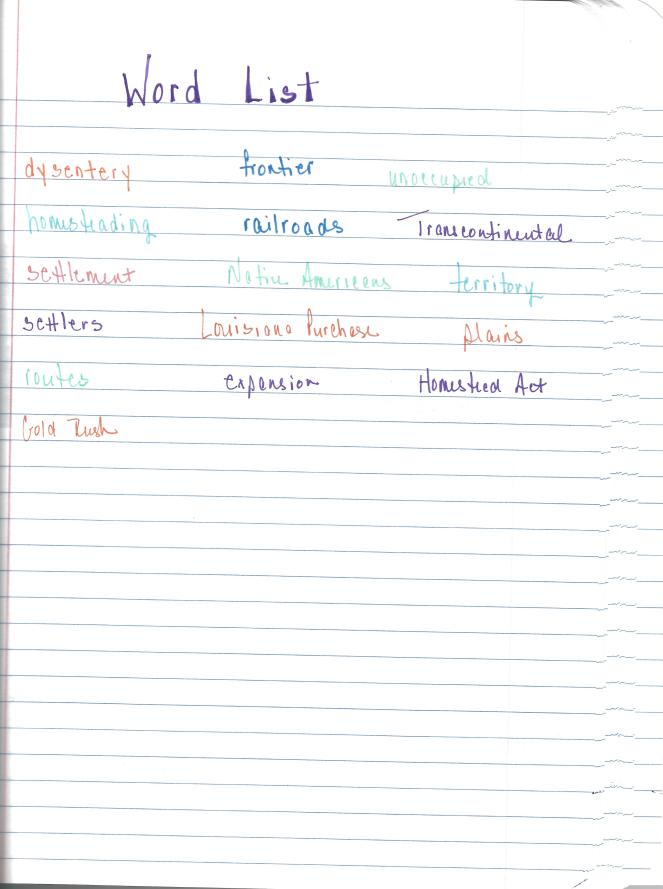 Word List
dysentery frontier unoccupied
homesteading railroads Transcontinental
settlement Native Americans territory
settlers Louisiana Purchase plains
routes expansion Homestead Act
Gold Rush